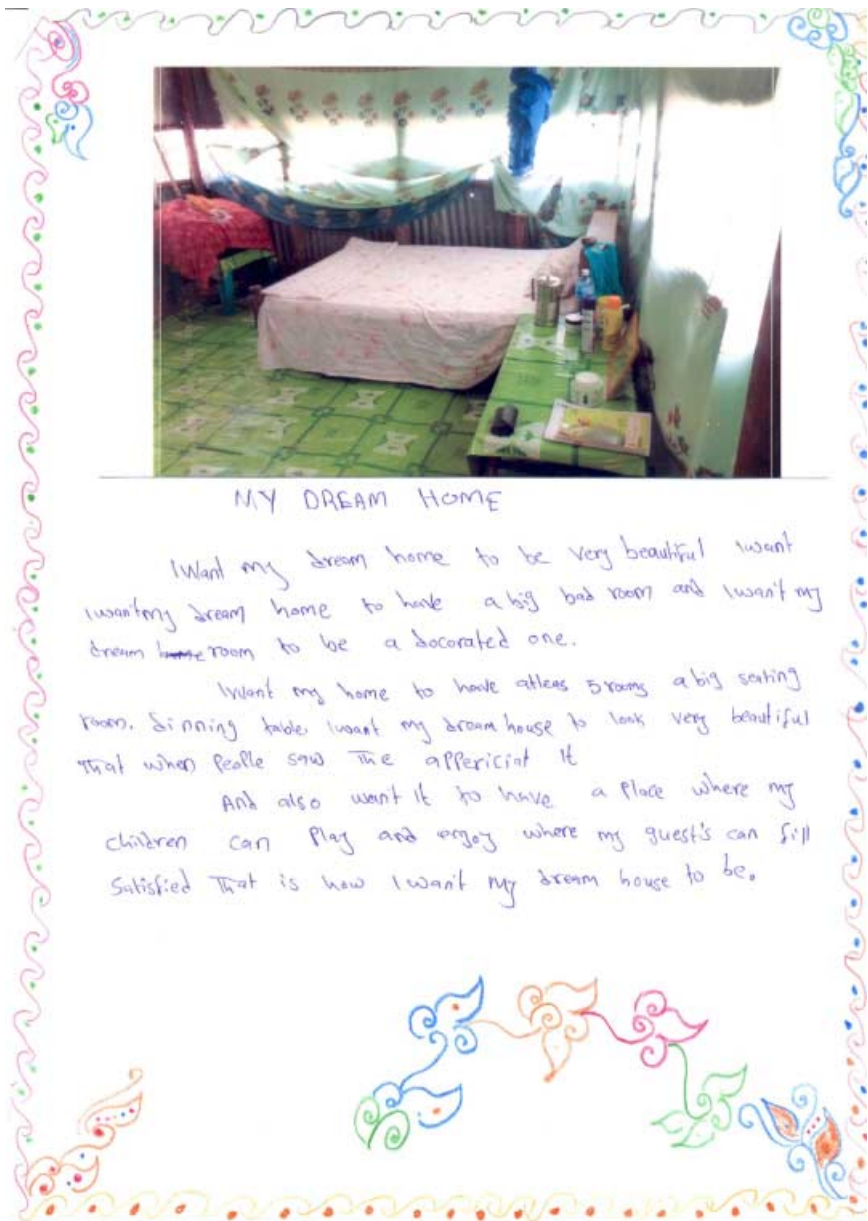 MY DREAM HOME
I want my dream home to be very beautiful I want
I wan't my dream home to have a big bad room and I wan't my
dream home room to be a docorated one.
I want my home to have atlees 5 rooms a big seating
room. dinning table. I want my dream house to look very beautiful
That when Peolle saw The appericiat It
And also want it to have a place where my
children can play and enjoy where my guest's can fill
Satisfied That is how I wan't my dream house to be.